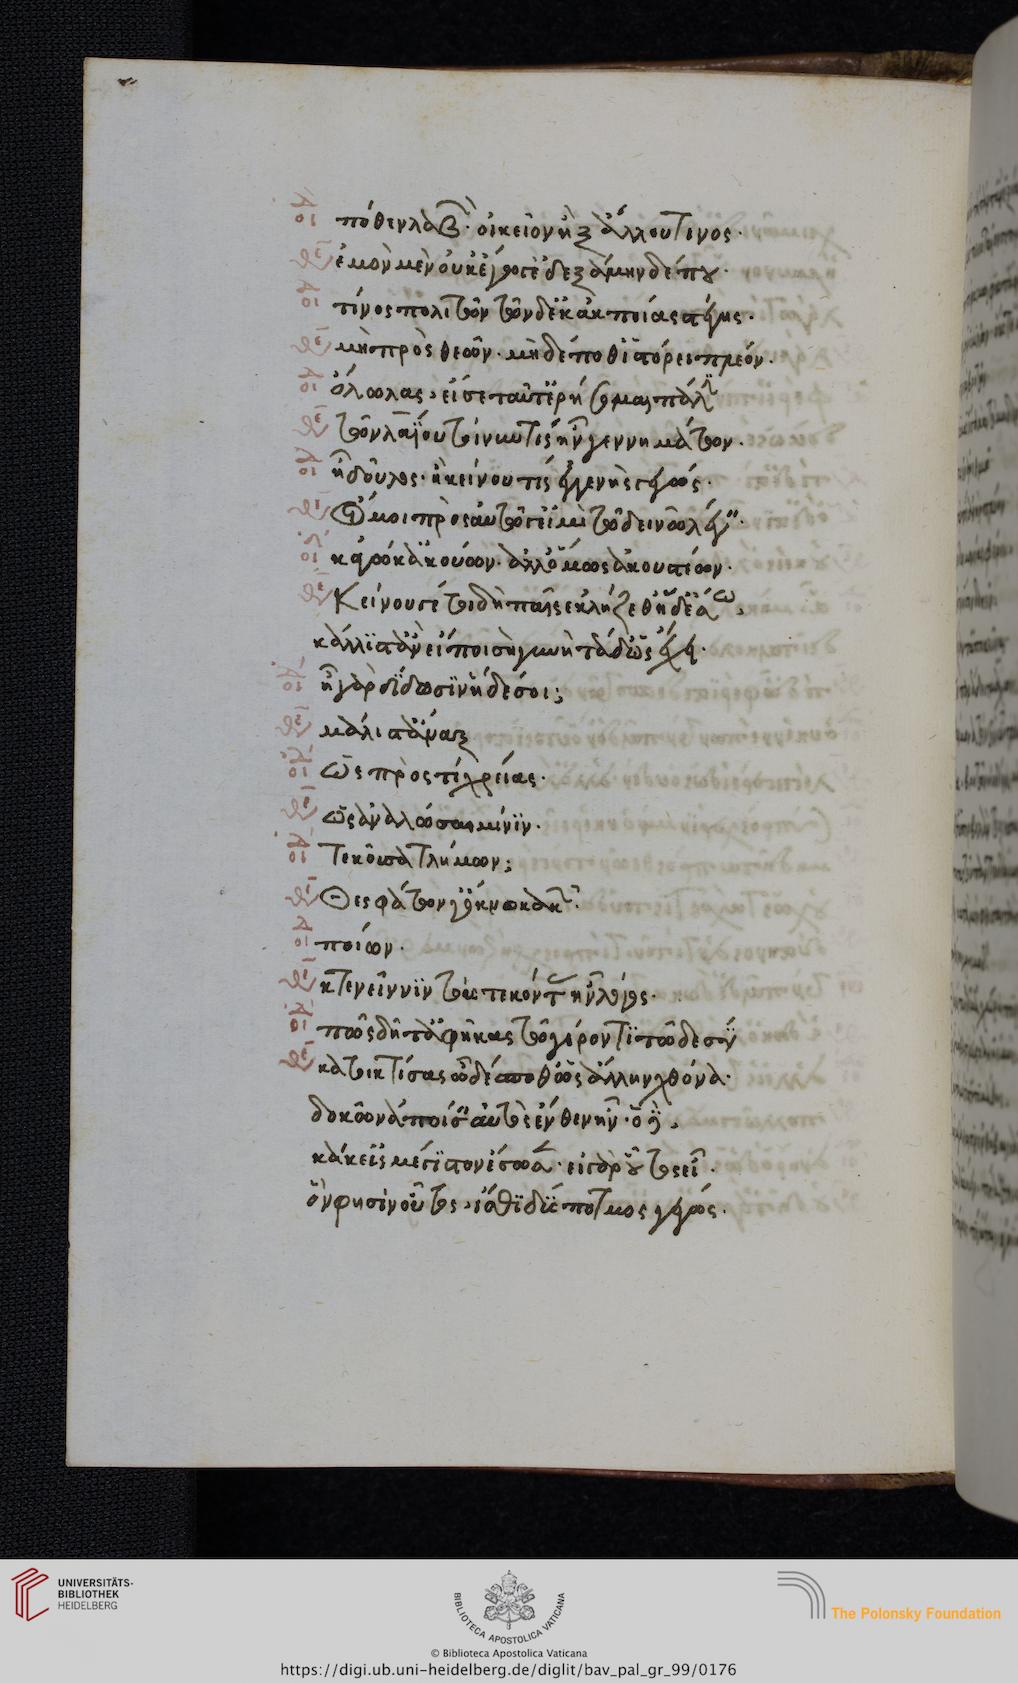 οι πόθεν λαβών· οἰκεῖον ἢ ξ ἄλλου τινός·
θε ἐμὸν μὲν οὐκ ἔγωγ' ἐδεξάμην δέ του·
οι τίνος πολιτῶν τῶνδε κἀκ ποίας στέγης·
θε μὴ πρὸς θεῶν· μὴ δέσποθ' ἱστόρει πλέον·
οι ὄλωλας, εἴ σε ταῦτ' ἐρήσομαι πάλιν
θε τῶν λαΐου τοίνυν τις ἦν γεννημάτων·
οι ἢ δοῦλος· ἢ κείνου τις ἐγγενὴς γεγώς·
θε οἴμοι πρὸς αὐτῷ γ' εἰμὶ τῷ δεινῷ λέγειν·
οι κἄγωγ' ἀκούων· ἀλλ' ὅμως ἀκουστέον·
θε Κείνου γέ τοι δὴ παῖς ἐκλῄζεθ' ἡ δ' ἔσω,
κάλλιστ' ἂν εἴποι σὴ γυνὴ τάδ' ὡς ἔχει·
οι ἦ γὰρ δίδωσιν ἥδε σοι;
θε μάλιστ' ἄναξ
οι ὡς πρὸς τί χρείας·
θε ὡς ἀναλώσαιμί νιν·
οι Τεκοῦσα τλήμων;
θε Θεσφάτων γ' ὄκνῳ κακῶν·
οι ποίων·
θε κτενεῖν νιν τοὺς τεκόντας ἦν λόγος·
οι πῶς δῆτ' ἀφῆκας τῷ γέροντι τῷδε σύ
θε κατοικτίσας ὦ δέσποθ' ὡς ἄλλην χθόνα·
δοκῶν ἀποίσειν αὐτὸς ἔνθεν ἦν· ὁ δὲ,
κἀκεῖς μέγιστον ἔσωσεν· εἰ γὰρ οὗτος εἶ·
ὅν φησιν οὗτος, ἴσθι δύσποτμος γεγώς·
UNIVERSITÄTS-
BIBLIOTHEK
HEIDELBERG
BIBLIOTECA APOSTOLICA VATICANA
The Polonsky Foundation
© Biblioteca Apostolica Vaticana
https://digi.ub.uni-heidelberg.de/diglit/bav_pal_gr_99/0176